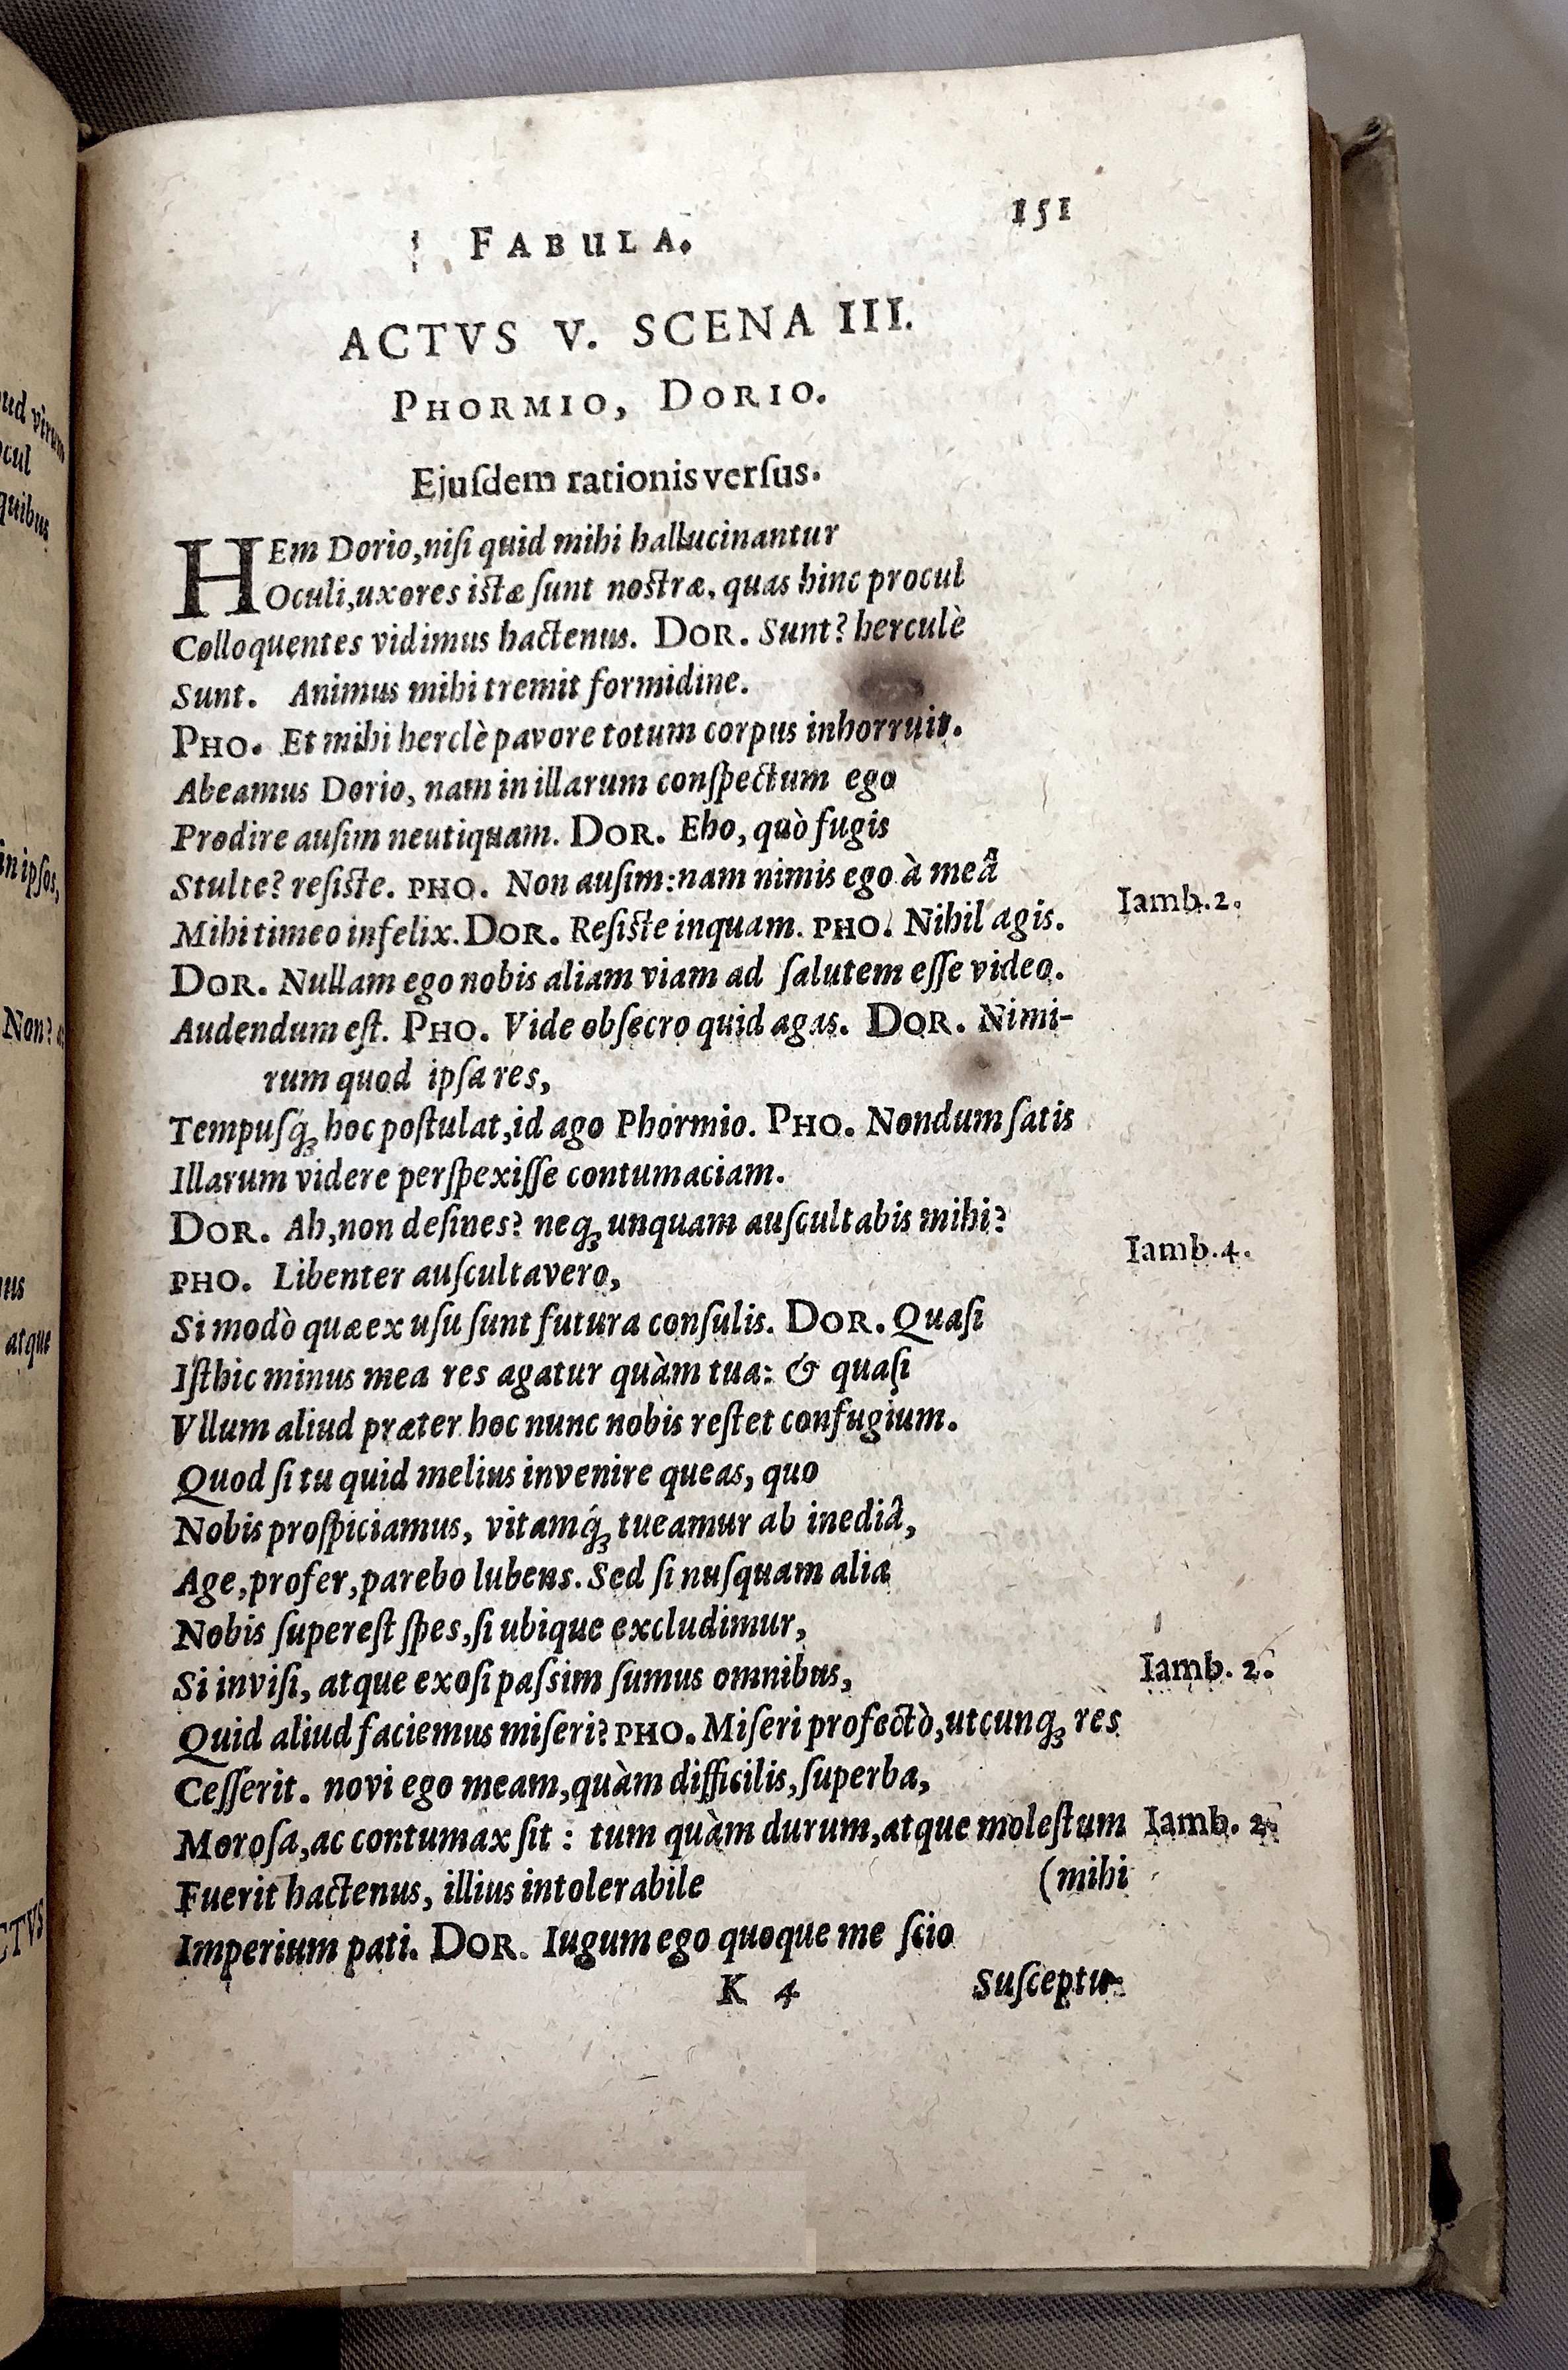 151
FABULA.
ACTVS V. SCENA III.
PHORMIO, DORIO.
Ejuſdem rationis verſus.
HEm Dorio, niſi quid mihi hallucinantur
Oculi, uxores iſtæ ſunt noſtræ, quas hinc procul
Colloquentes vidimus hactenus. DOR. Sunt? herculè
Sunt. Animus mihi tremit formidine.
PHO. Et mihi herclè pavore totum corpus inhorruit.
Abeamus Dorio, nam in illarum conſpectum ego
Prodire auſim neutiquam. DOR. Eho, quò fugis
Stulte? reſiſte. PHO. Non auſim: nam nimis ego à meâ
Iamb. 2.
Mihi timeo infelix. DOR. Reſiſte inquam. PHO. Nihil agis.
DOR. Nullam ego nobis aliam viam ad ſalutem eſſe video.
Audendum eſt. PHO. Vide obſecro quid agas. DOR. Nimi-
rum quod ipſa res,
Tempuſq́ꝫ hoc poſtulat, id ago Phormio. PHO. Nondum ſatis
Illarum videre perſpexiſſe contumaciam.
DOR. Ah, non deſines? neqꝫ unquam auſcultabis mihi?
Iamb. 4.
PHO. Libenter auſcultavero,
Si modò quæ ex uſu ſunt futura conſulis. DOR. Quaſi
Iſthic minus mea res agatur quàm tua: & quaſi
Vllum aliud præter hoc nunc nobis reſtet confugium.
Quod ſi tu quid melius invenire queas, quo
Nobis proſpiciamus, vitamq́ꝫ tueamur ab inediâ,
Age, profer, parebo lubens. Sed ſi nuſquam alia
Nobis ſupereſt ſpes, ſi ubique excludimur,
Si inviſi, atque exoſi paſsim ſumus omnibus,
Iamb. 2.
Quid aliud faciemus miſeri? PHO. Miſeri profectò, utcunqꝫ res
Ceſſerit. novi ego meam, quàm difficilis, ſuperba,
Moroſa, ac contumax ſit: tum quàm durum, atque moleſtum
Iamb. 2.
(mihi
Fuerit hactenus, illius intolerabile
Imperium pati. DOR. Iugum ego quoque me ſcio
K 4
Suſceptu-
ud virum
ocul
quibus
in ipſos,
Non?
nus
atque
CTVS